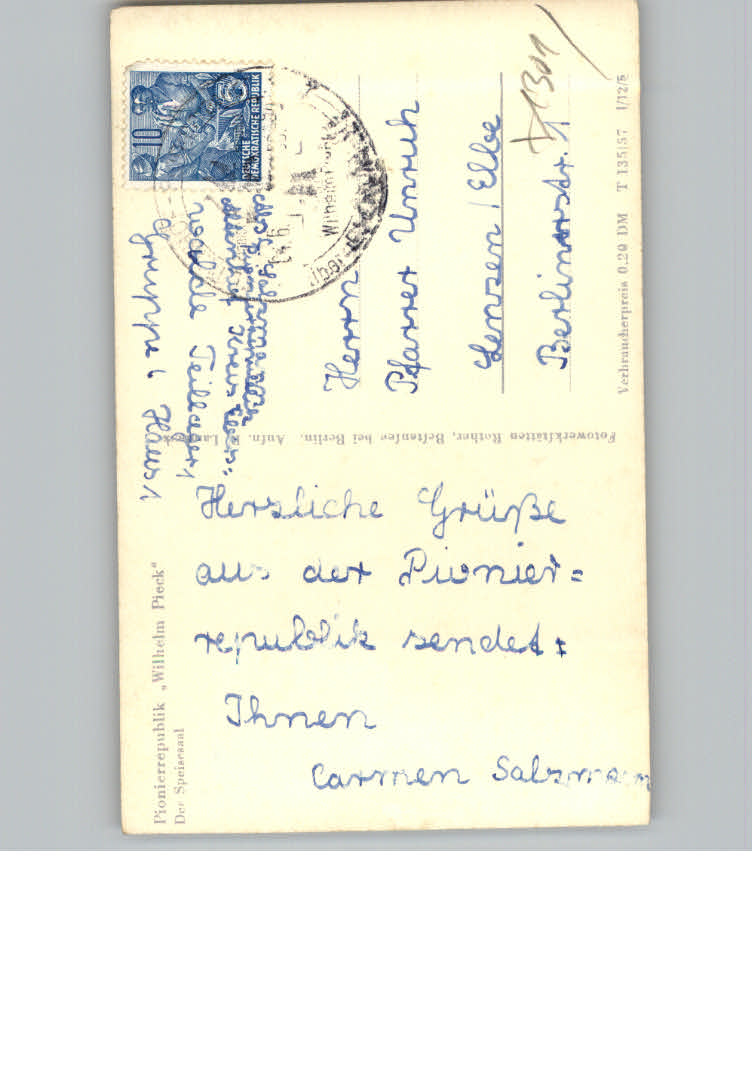 Pionierrepublik „Wilhelm Pieck“
Der Speisesaal
Herzliche Grüße
aus der Pionier=
republik sendet:
Ihnen
Carmen Salzmann
Fotowerkstätten Rother, Bestensee bei Berlin. Aufn.
10
DEUTSCHE
DEMOKRATISCHE REPUBLIK
Wilhelm
Gruppe 6 Haus 1
Herrn
Pfarrer Unruh
Lenzen / Elbe
Berlinerstr. 1
Verbraucherpreis 0.20 DM T 135/57 1/12/8
1301